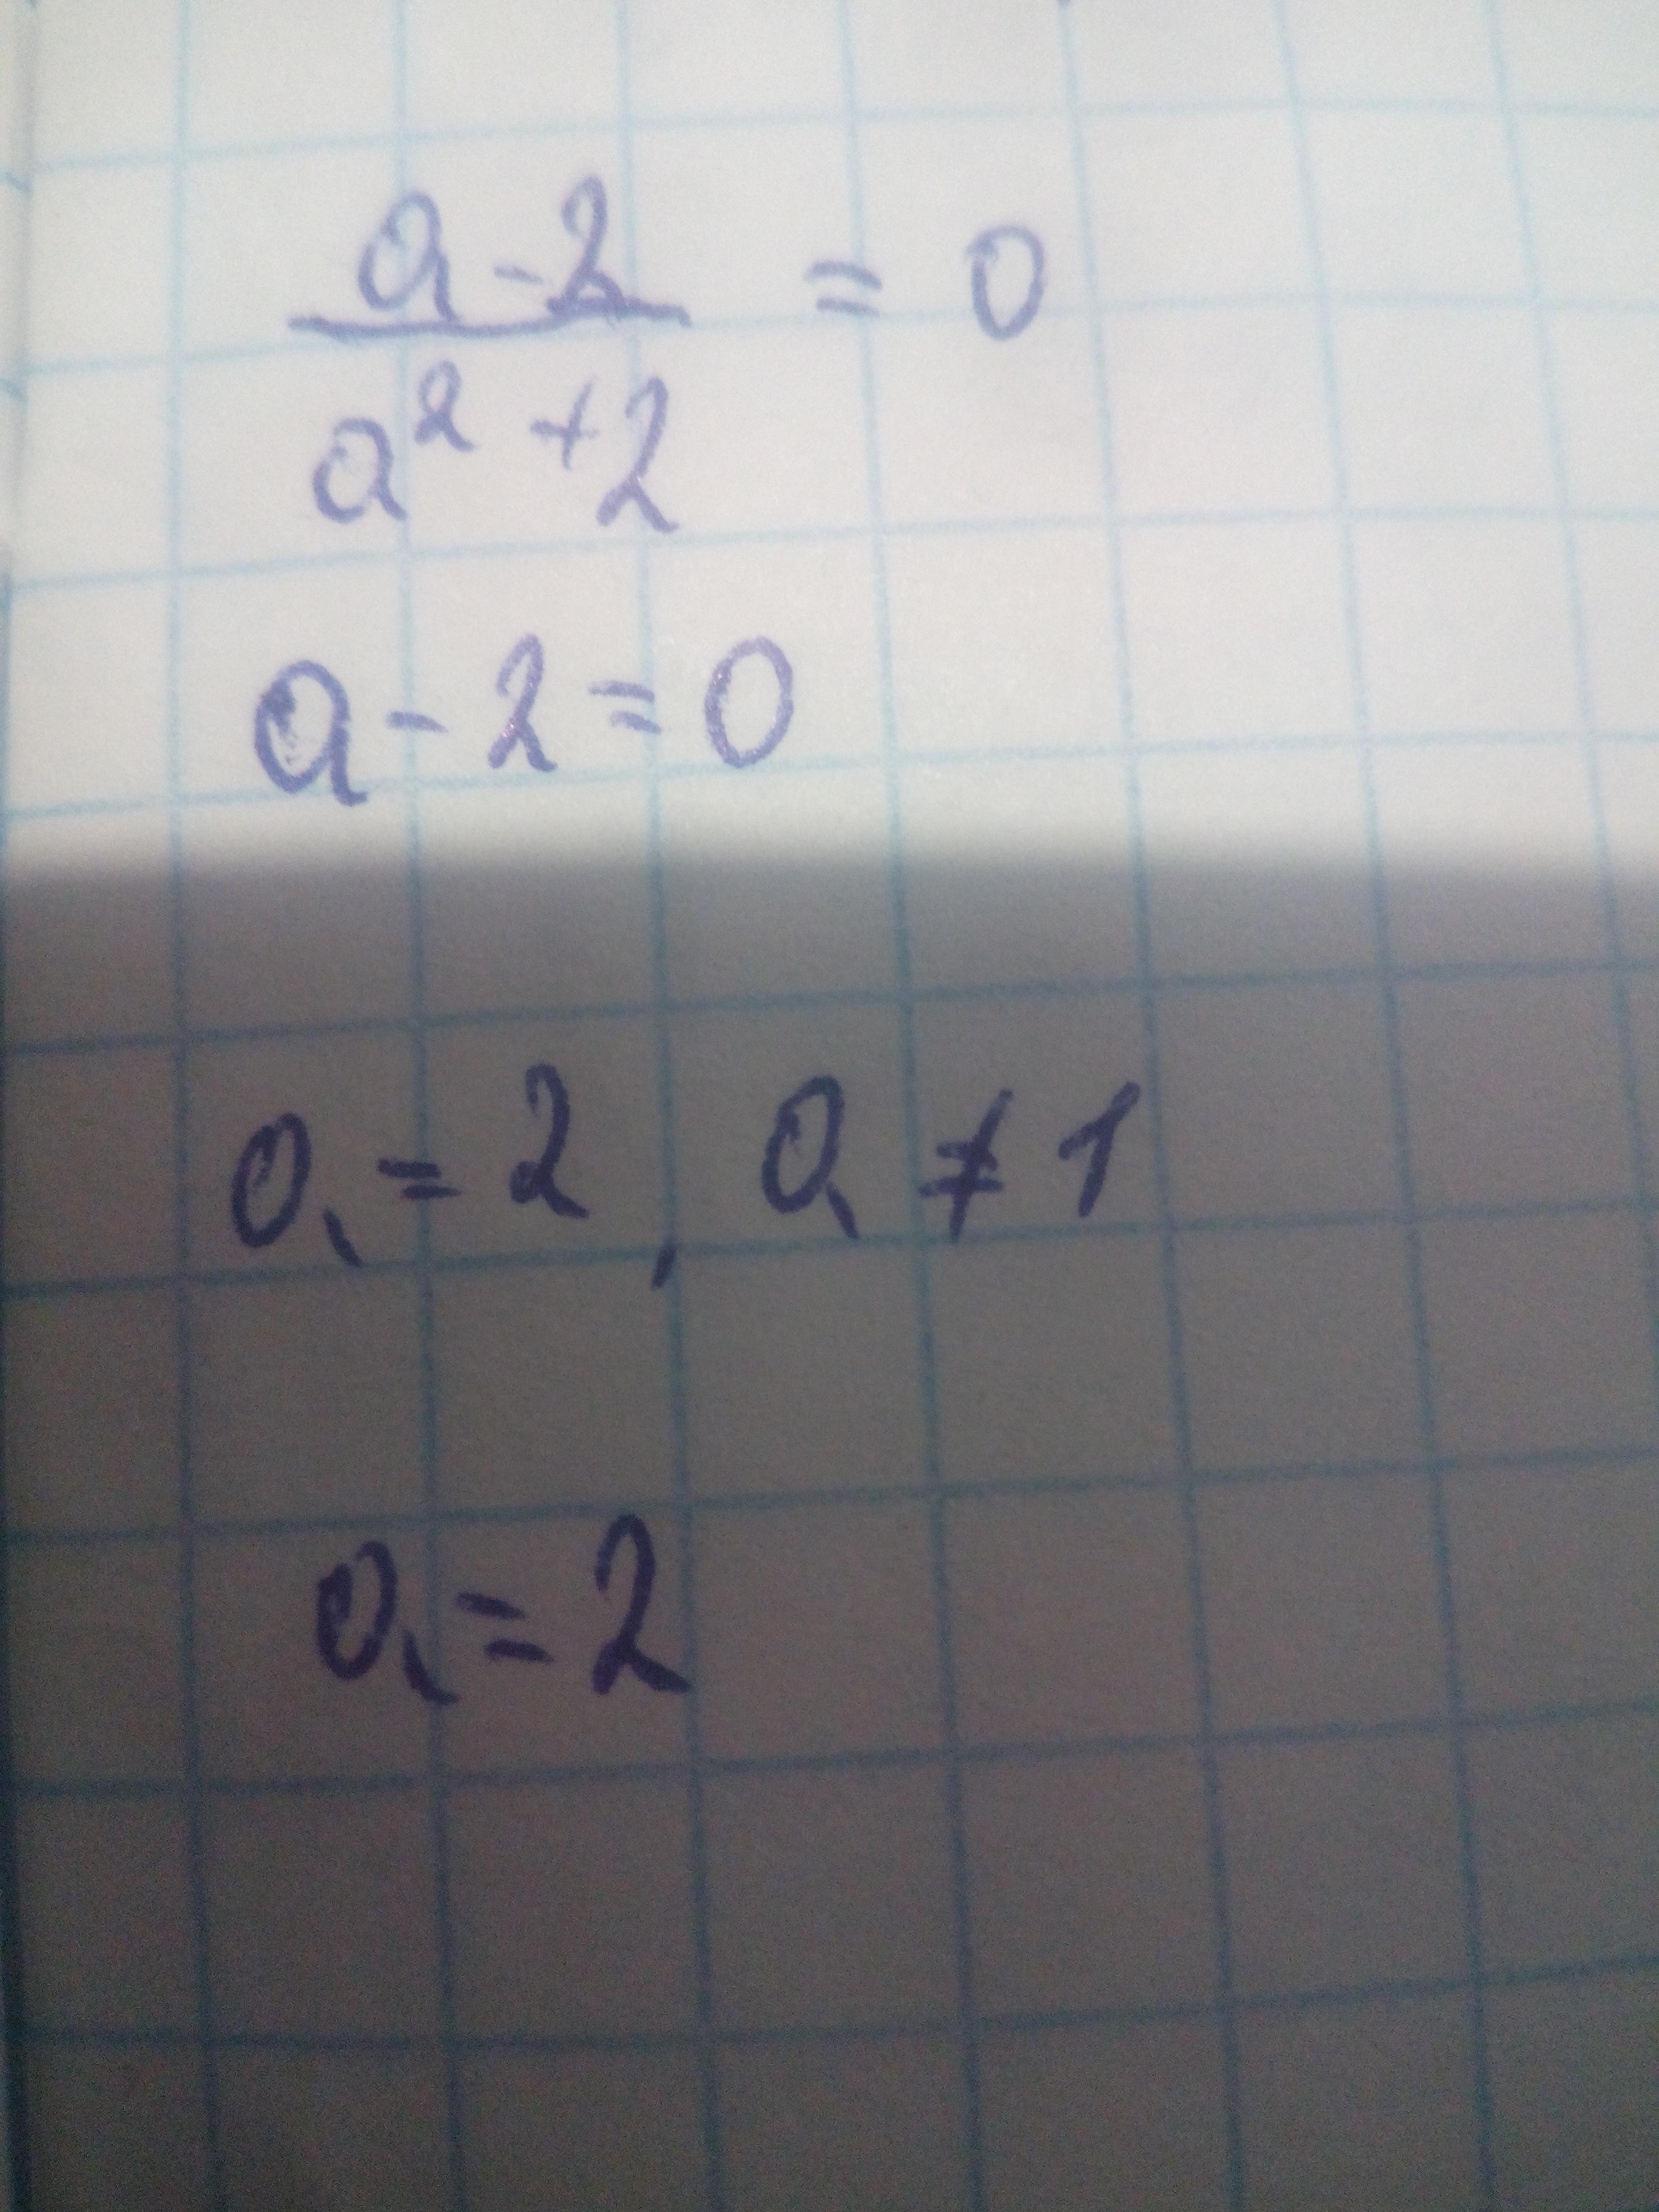 a - 2 / a² + 2 = 0
a - 2 = 0
a = 2, a ≠ 1
a = 2